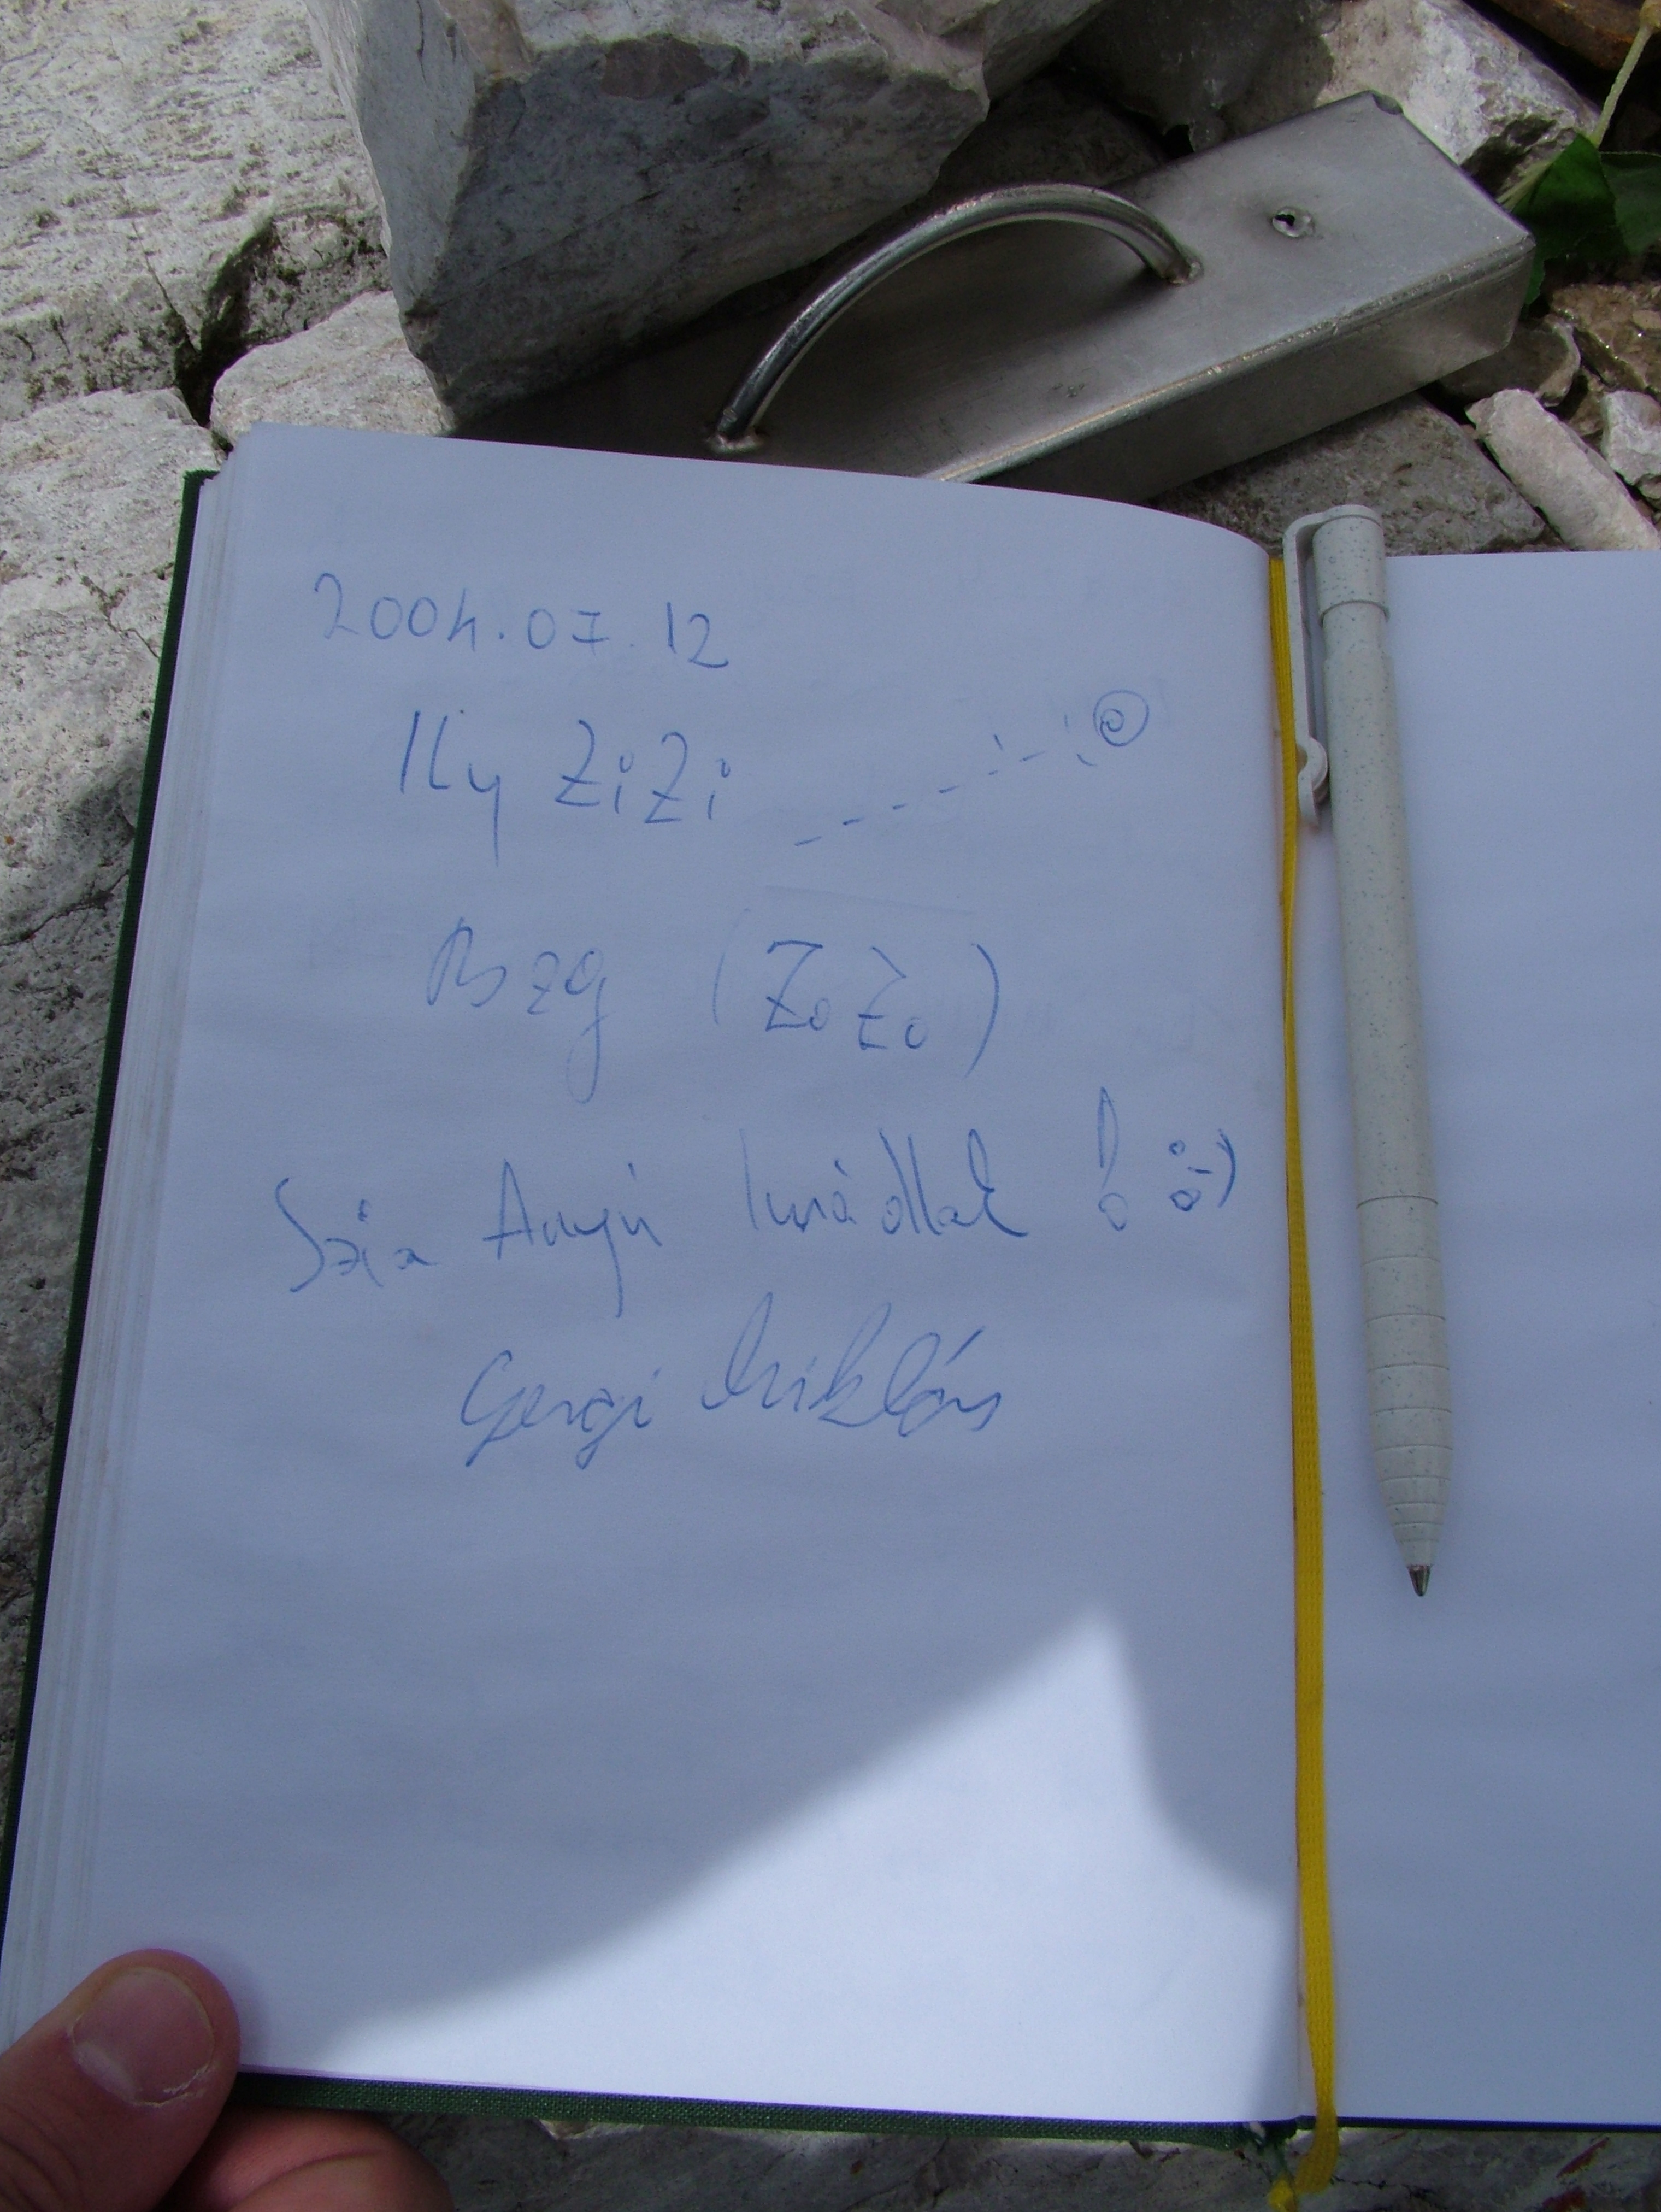 2004.07.12
Ily ZiZi
Bzg (ZoZo)
Szia Anyú Imádlak! :-)
Gergi Miklós